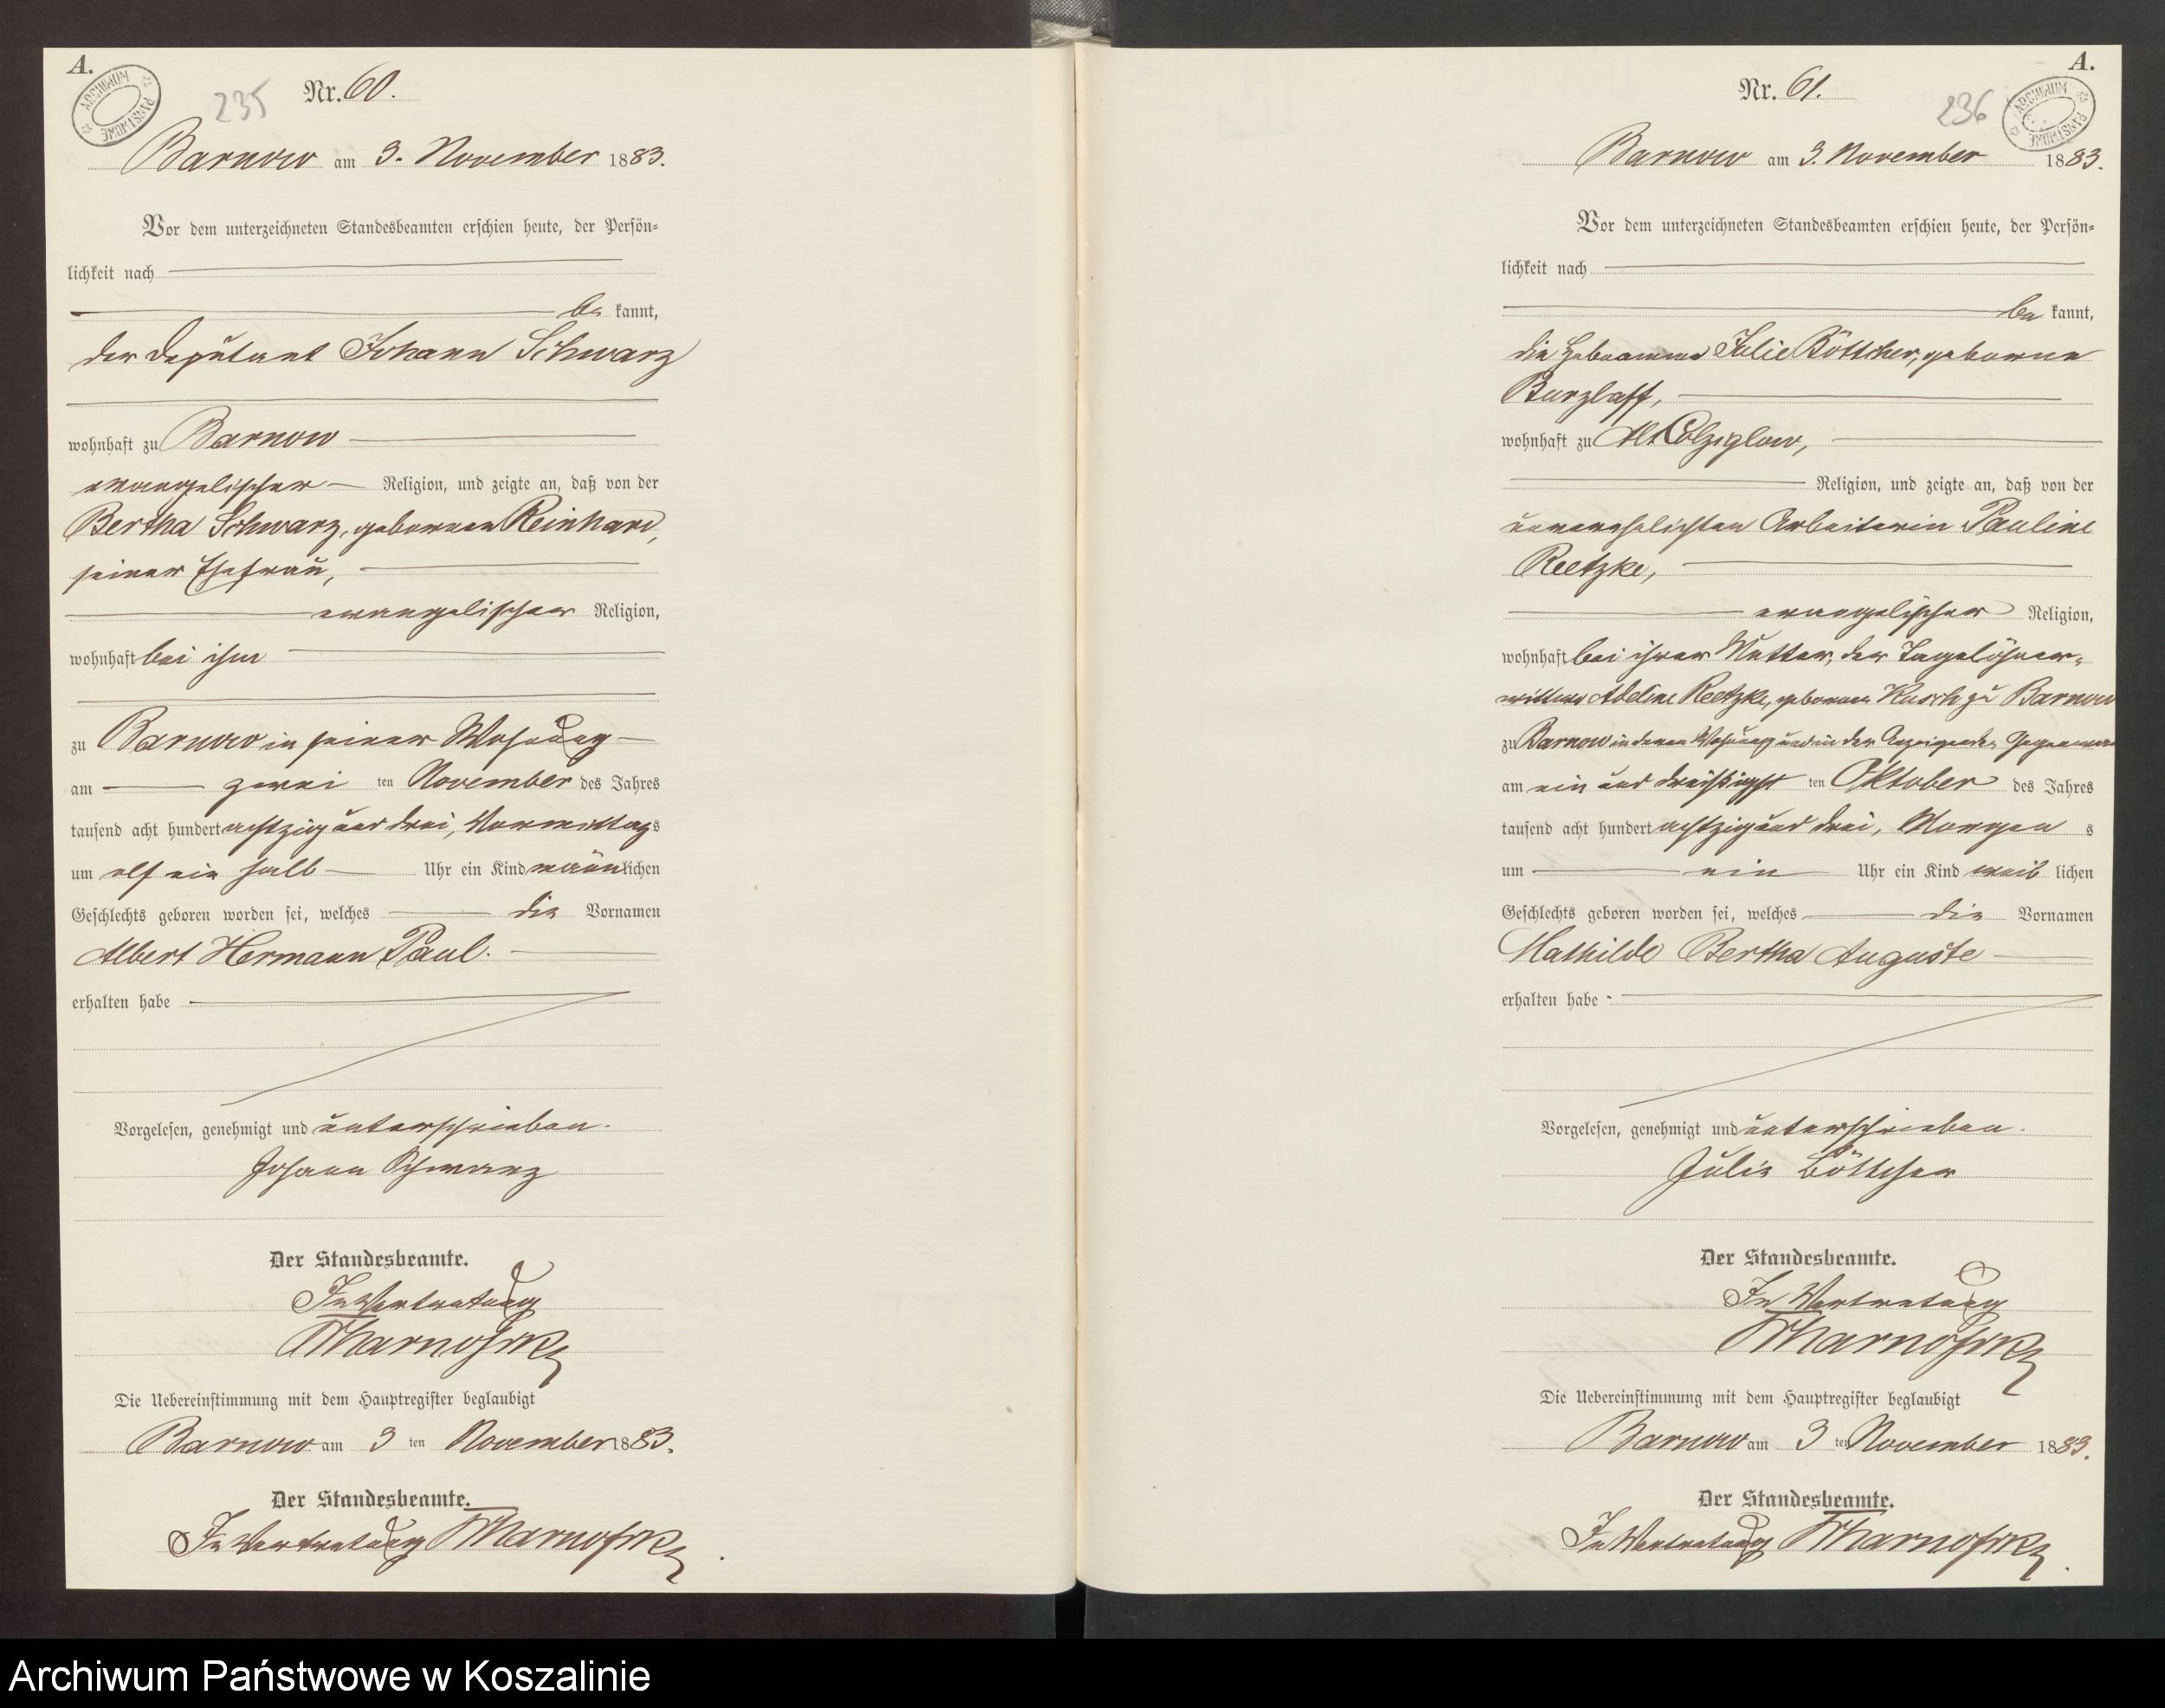 A.
ARCHIWUM PAŃSTWOWE
235
Nr. 60.
Barnow am 3. November 1883.
Vor dem unterzeichneten Standesbeamten erschien heute, der Persön-
lichkeit nach
be kannt,
der Deputant Johann Schwarz
wohnhaft zu Barnow
evangelischer Religion, und zeigte an, daß von der
Bertha Schwarz, geborenen Reinhard,
seiner Ehefrau,
evangelischer Religion,
wohnhaft bei ihm
zu Barnow in seiner Wohnung
am zwei ten November des Jahres
tausend acht hundert achtzig und drei, Vormittags
um elf ein halb Uhr ein Kind männlichen
Geschlechts geboren worden sei, welches die Vornamen
Albert Hermann Paul.
erhalten habe
Vorgelesen, genehmigt und unterschrieben.
Johann Schwarz
Der Standesbeamte.
In Vertretung
Die Uebereinstimmung mit dem Hauptregister beglaubigt
Barnow am 3 ten November 1883.
Der Standesbeamte.
In Vertretung
A.
ARCHIWUM PAŃSTWOWE
236
Nr. 61.
Barnow am 3. November 1883.
Vor dem unterzeichneten Standesbeamten erschien heute, der Persön-
lichkeit nach
be kannt,
die Hebeamme Julie Böttcher, geborene
Burzlaff,
wohnhaft zu Alt Colziglow,
Religion, und zeigte an, daß von der
unverehelichten Arbeiterin Pauline
Reetzke,
evangelischer Religion,
wohnhaft bei ihrer Mutter, der Tagelöhner-
wittwe Adeline Reetzke, geborenen Kusch zu Barnow
zu Barnow in deren Wohnung und in der Anzeigenden Gegenwart
am ein und dreißigst ten Oktober des Jahres
tausend acht hundert achtzig und drei, Morgen s
um ein Uhr ein Kind weib lichen
Geschlechts geboren worden sei, welches die Vornamen
Mathilde Bertha Auguste
erhalten habe
Vorgelesen, genehmigt und unterschrieben.
Julie Böttcher
Der Standesbeamte.
In Vertretung
Die Uebereinstimmung mit dem Hauptregister beglaubigt
Barnow am 3 ten November 1883.
Der Standesbeamte.
In Vertretung
Archiwum Państwowe w Koszalinie